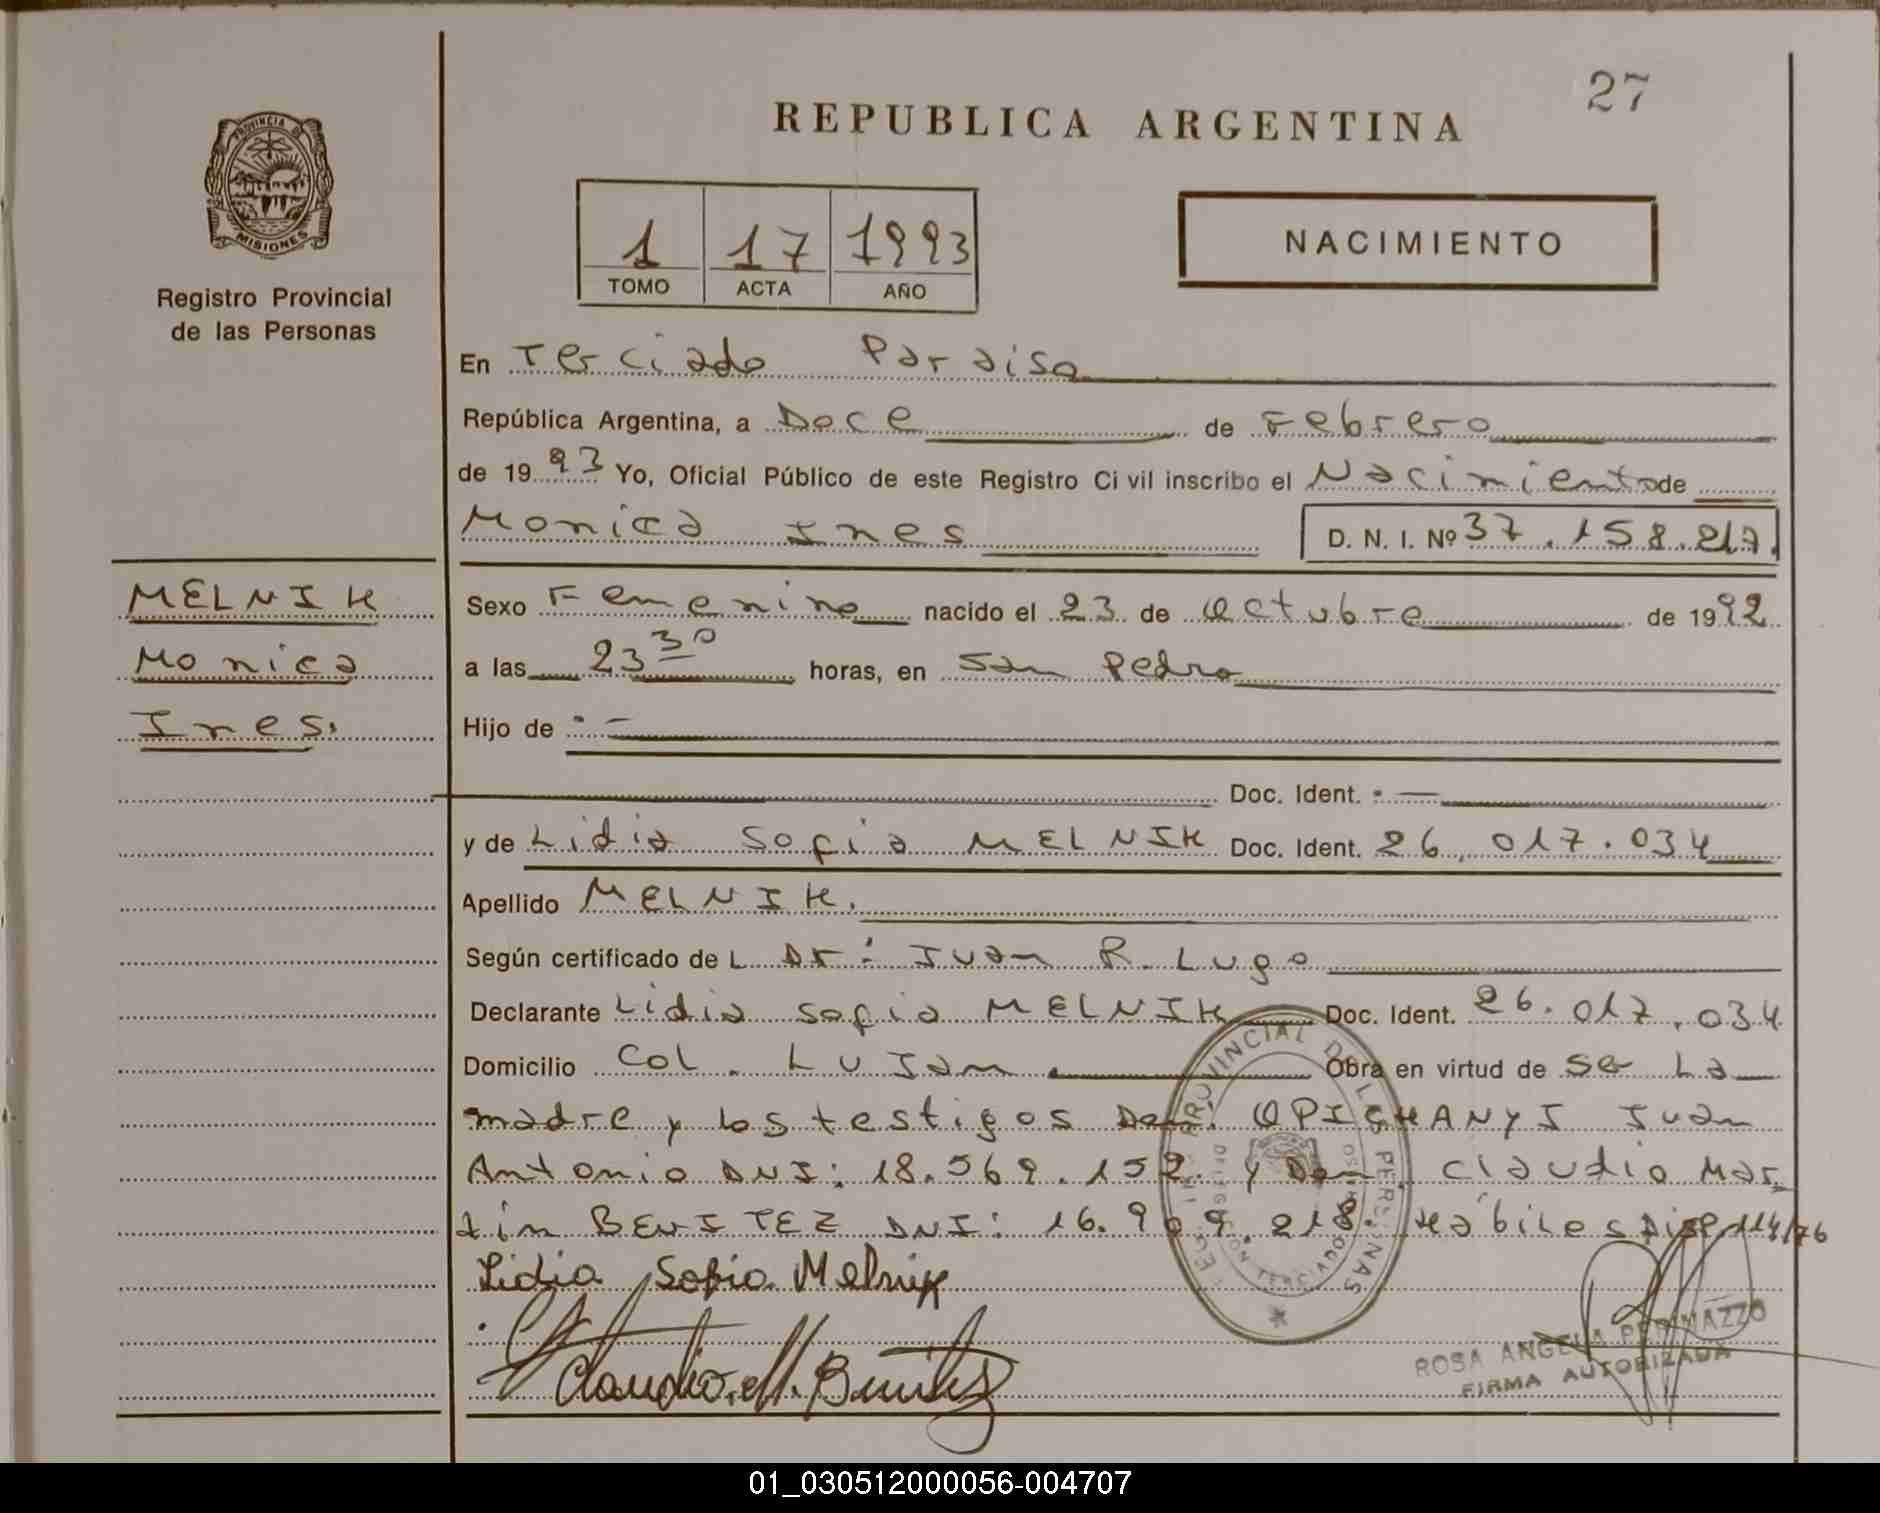 27
REPUBLICA ARGENTINA
PROVINCIA DE
MISIONES
Registro Provincial
de las Personas
1 17 1993
TOMO ACTA AÑO
NACIMIENTO
En Terciado Paraiso
República Argentina, a Doce de Febrero
de 1993 Yo, Oficial Público de este Registro Ci vil inscribo el Nacimiento de
Monica Ines D. N. I. Nº 37.158.217.
MELNIK
Monica
Ines.
Sexo Femenino nacido el 23 de Octubre de 1992
a las 23 30 horas, en San Pedro
Hijo de . —
Doc. Ident. . —
y de Lidia Sofia MELNIK Doc. Ident. 26.017.034
Apellido MELNIK.
Según certificado de L Dr: Juan R. Lugo
Declarante Lidia Sofia MELNIK Doc. Ident. 26.017.034
Domicilio Col. LuJan. Obra en virtud de Se La
madre y los testigos Don: OPICHANYI Juan
Antonio DNI: 18.569.152. y Don: Claudio Mar
tin BENITEZ DNI: 16.909.218. Hábiles Disp 114/76
Lidia Sofia Melnik
Claudio M. Benitez
PROVINCIAL DE LAS PERSONAS
DELEGACION TERCIADO
ROSA ANGELA PERIMAZZO
FIRMA AUTORIZADA
01_030512000056-004707